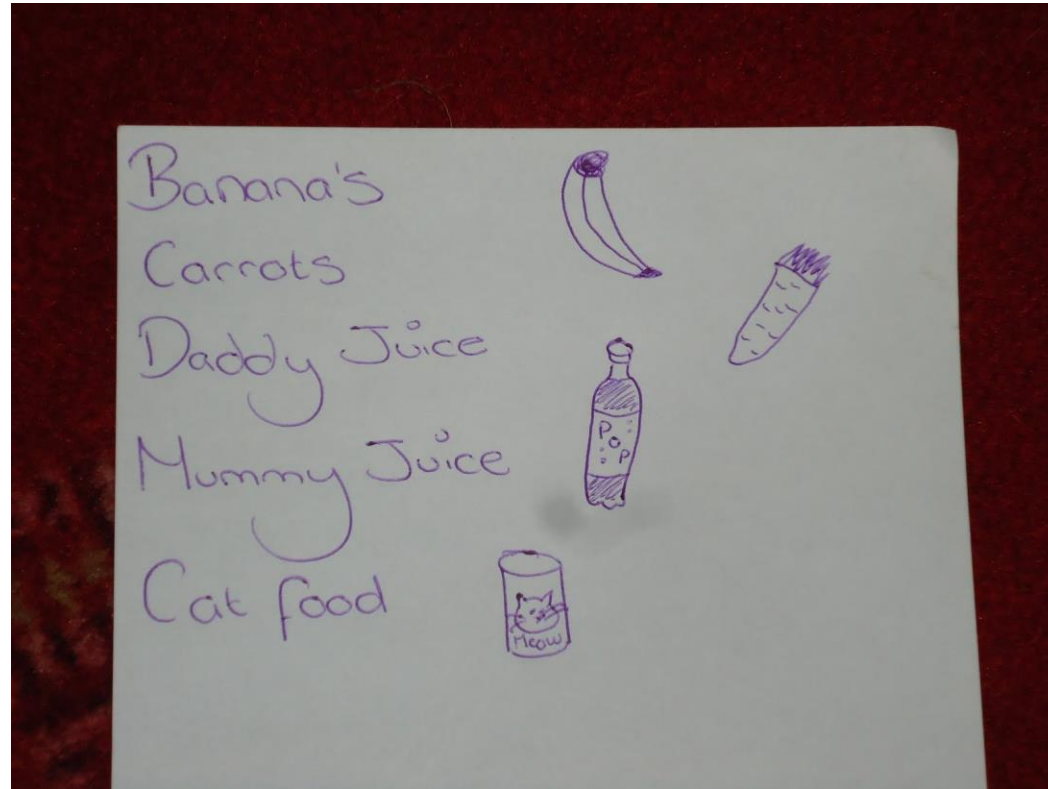 Banana's
Carrots
Daddy Juice
Mummy Juice
POP
Cat food
Meow